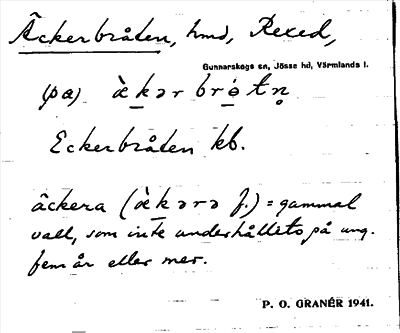 Äckerbråten, hmd, Rexed,
Gunnarskogs sn, Jösse hd, Värmlands l.
(på) ὰkər brȯ́tn̥
Eckerbråten kb.
äckera (ὰkərə f.) = gammal
vall, som inte underhållits på ung.
fem år eller mer.
P. O. GRANÉR 1941.